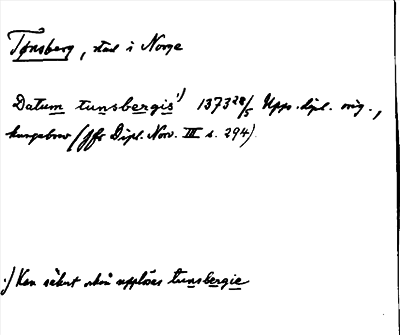 Tønsberg, stad i Norge
Datum tunsbergis¹) 1373 28/5 Upps. dipl. orig.,
kungabrev (jfr Dipl. Norv. III s. 294).
¹) Kan säkert också upplösas tunsbergie